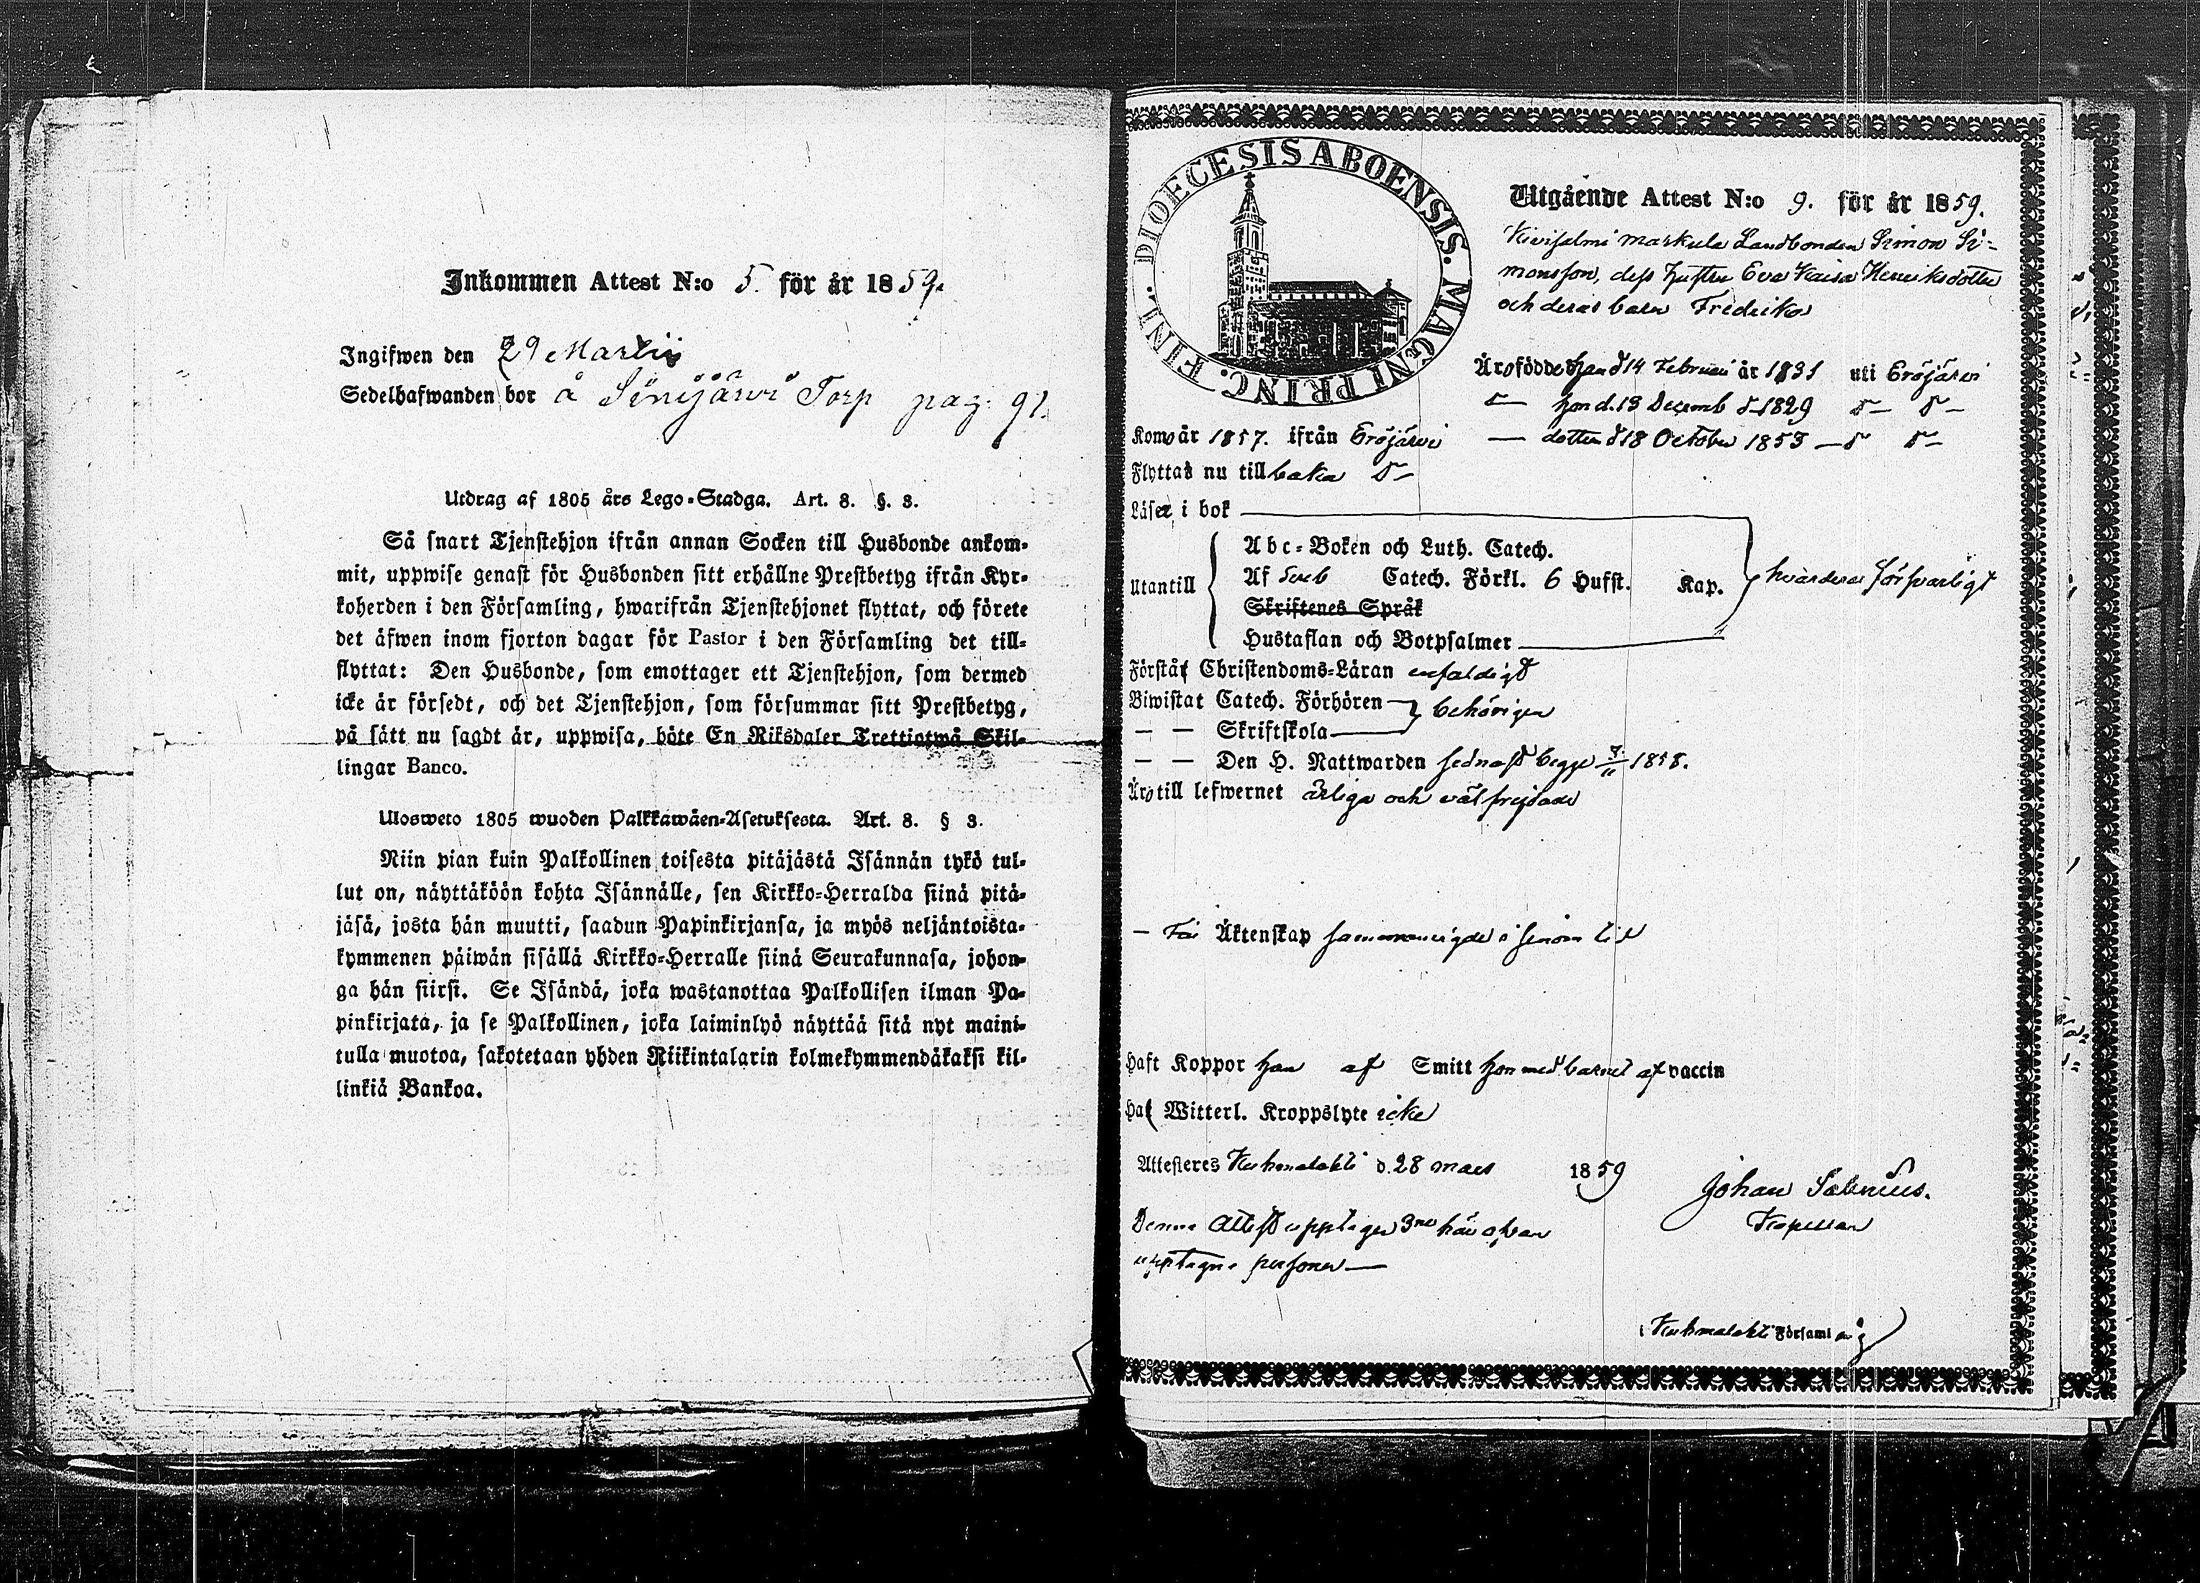 Inkommen Attest N:o 5. för år 1859.
Ingifwen den 29 Martii
Sedelhafwanden bor å Sinijärvi Torp pag: 91.
Utdrag af 1805 års Lego-Stadga. Art. 8. §. 3.
Så snart Tjenstehjon ifrån annan Socken till Husbonde ankom-
mit, uppwise genast för Husbonden sitt erhållne Prestbetyg ifrån Kyr-
koherden i den Församling, hwarifrån Tjenstehjonet flyttat, och förete
det äfwen inom fjorton dagar för Pastor i den Församling det till-
flyttat: Den Husbonde, som emottager ett Tjenstehjon, som dermed
icke är försedt, och det Tjenstehjon, som försummar sitt Prestbetyg,
på sätt nu sagdt är, uppwisa, böte En Riksdaler Trettiotwå Skil-
lingar Banco.
Ulosweto 1805 wuoden Palkkawäen-Asetuksesta. Art. 8. § 3.
Niin pian kuin Palkollinen toisesta pitäjästä Isännän tykö tul-
lut on, näyttäköön kohta Isännälle, sen Kirkko-Herralda siinä pitä-
jäsä, josta hän muutti, saadun Papinkirjansa, ja myös neljäntoista-
kymmenen päiwän sisällä Kirkko-Herralle siinä Seurakunnasa, johon-
ga hän siirsi. Se Isändä, joka wastanottaa Palkollisen ilman Pa-
pinkirjata, ja se Palkollinen, joka laiminlyö näyttää sitä nyt maini-
tulla muotoa, sakotetaan yhden Riikintalarin kolmekymmendäkaksi kil-
linkiä Bankoa.
DIOECESIS ABOENSIS. MAGNI PRINC. FINL.
Utgående Attest N:o 9. för år 1859.
Markula Landbonden Simon Si-
monsson, dess hustru Eva Kaisa Henriksdotter
och deras barn Fredrika
Äro födde han d 14 Februari år 1831 uti Eräjärvi
d- hon d. 13 Decemb d- 1829 d- d-
Komo år 1857. ifrån Eräjärvi — dotter d 18 October 1853 — d d-
Flyttas nu till baka d-
Läser i bok
Abc-Boken och Luth. Catech.
Utantill Af Cateh. Förkl. 6 Hufst. Kap. hvardera försvarligt
Skriftenes Språk
Hustaflan och Botpsalmer
Förstår Christendoms-Läran enfaldigt
Biwistat Catech. Förhören behörigen
— — Skriftskola
— — Den H. Nattwarden sednast begge 7/11 1858.
Äro till lefwernet ärliga och väl frejdade
— För Äktenskap sammanvigde i sinom tid
Haft Koppor han af Smitt hon med barnet af vaccin
Haf Witterl. Kroppslyte icke
Attesteres Kuhmalahti d. 28 mars 1859
Johan Salenius.
Kapellan
Denna Attest upptager 3ne här ofvan
upptagne personer —
i Kuhmalahti Församling